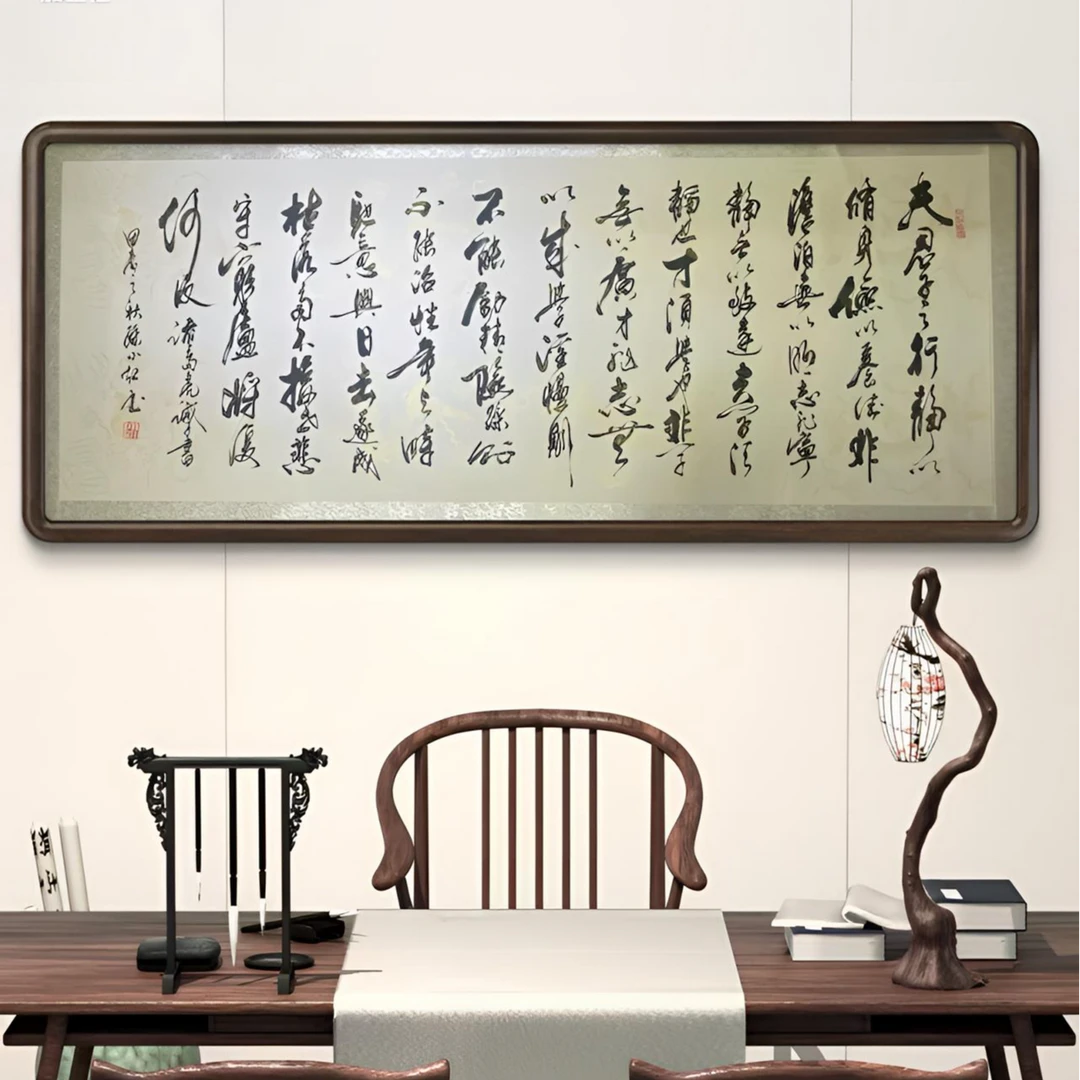 夫君子之行靜以
脩身儉以養德非
澹泊無以明志非寧
靜無以致遠夫學須
靜也才須學也非學
無以廣才非志無
以成學淫慢則
不能勵精險躁則
不能治性年与時
馳意與日去遂成
枯落多不接世悲
守窮廬將復
何及
諸葛亮誡書
甲辰之秋